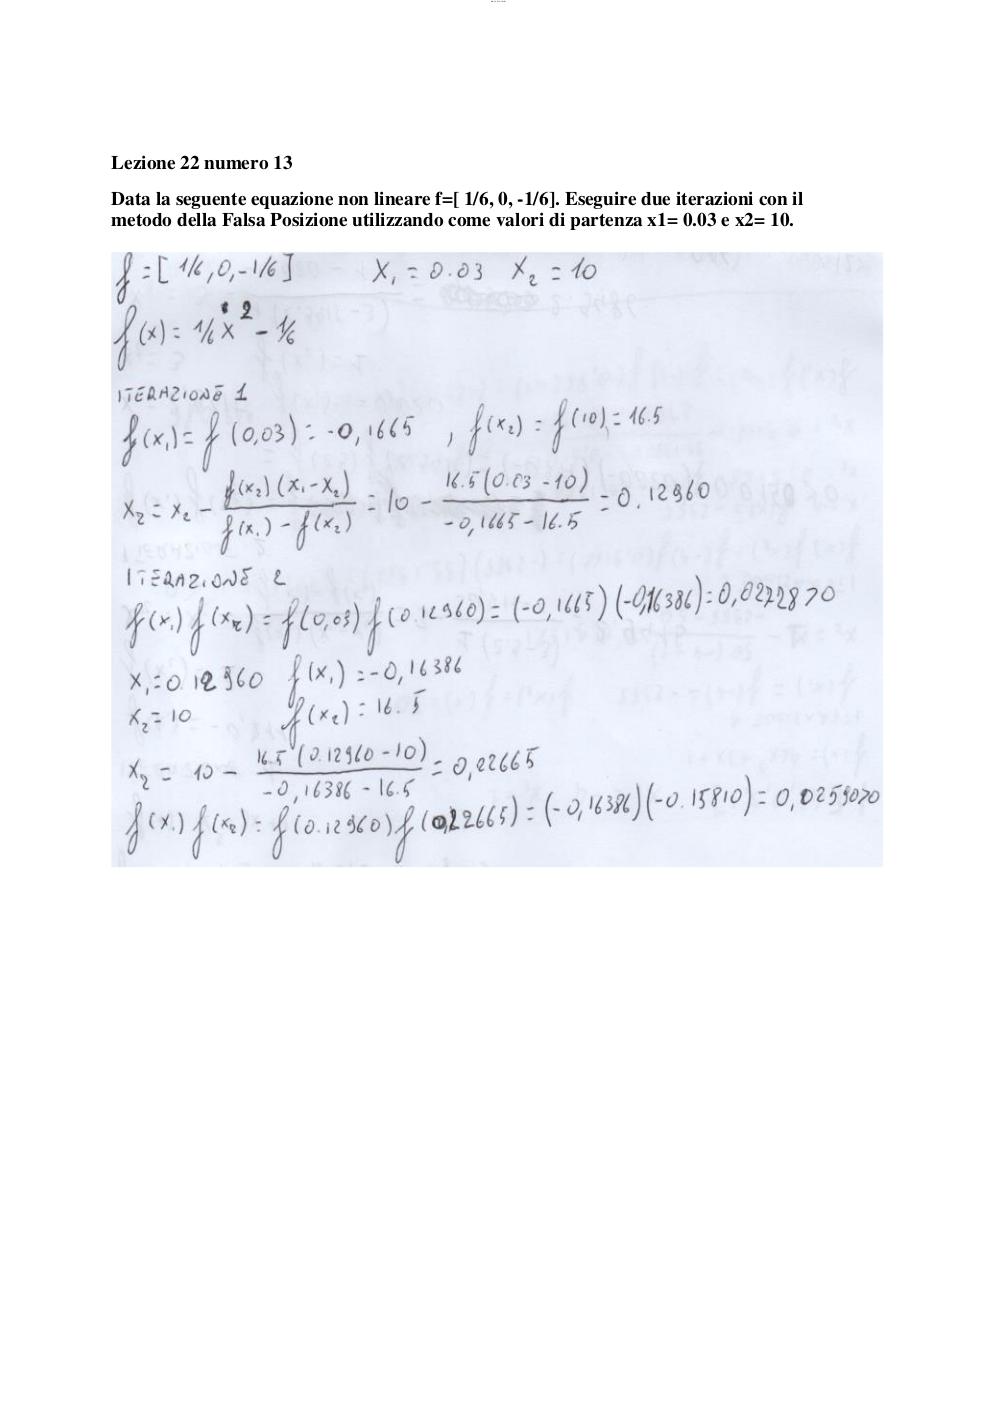 Lezione 22 numero 13
Data la seguente equazione non lineare f=[ 1/6, 0, -1/6]. Eseguire due iterazioni con il
metodo della Falsa Posizione utilizzando come valori di partenza x1= 0.03 e x2= 10.
f = [ 1/6, 0, -1/6 ] X₁ = 0.03 X₂ = 10
f(x) = 1/6 x² - 1/6
ITERAZIONE 1
f(x₁) = f(0,03) = -0,1665 , f(x₂) = f(10) = 16.5
x₂ = x₂ - f(x₂)(x₁-x₂) / f(x₁) - f(x₂) = 10 - 16.5(0.03-10) / -0,1665-16.5 = 0.12960
ITERAZIONE 2
f(x₁) f(xᵣ) = f(0,03) f(0.12960) = (-0,1665)(-0,16386) = 0,0272870
x₁=0.12960 f(x₁) = -0,16386
x₂=10 f(x₂) = 16.5
x₂ = 10 - 16.5 (0.12960-10) / -0,16386-16.5 = 0,22665
f(x₁) f(x₂) = f(0.12960) f(0,22665) = (-0,16386)(-0.15810) = 0,0259070